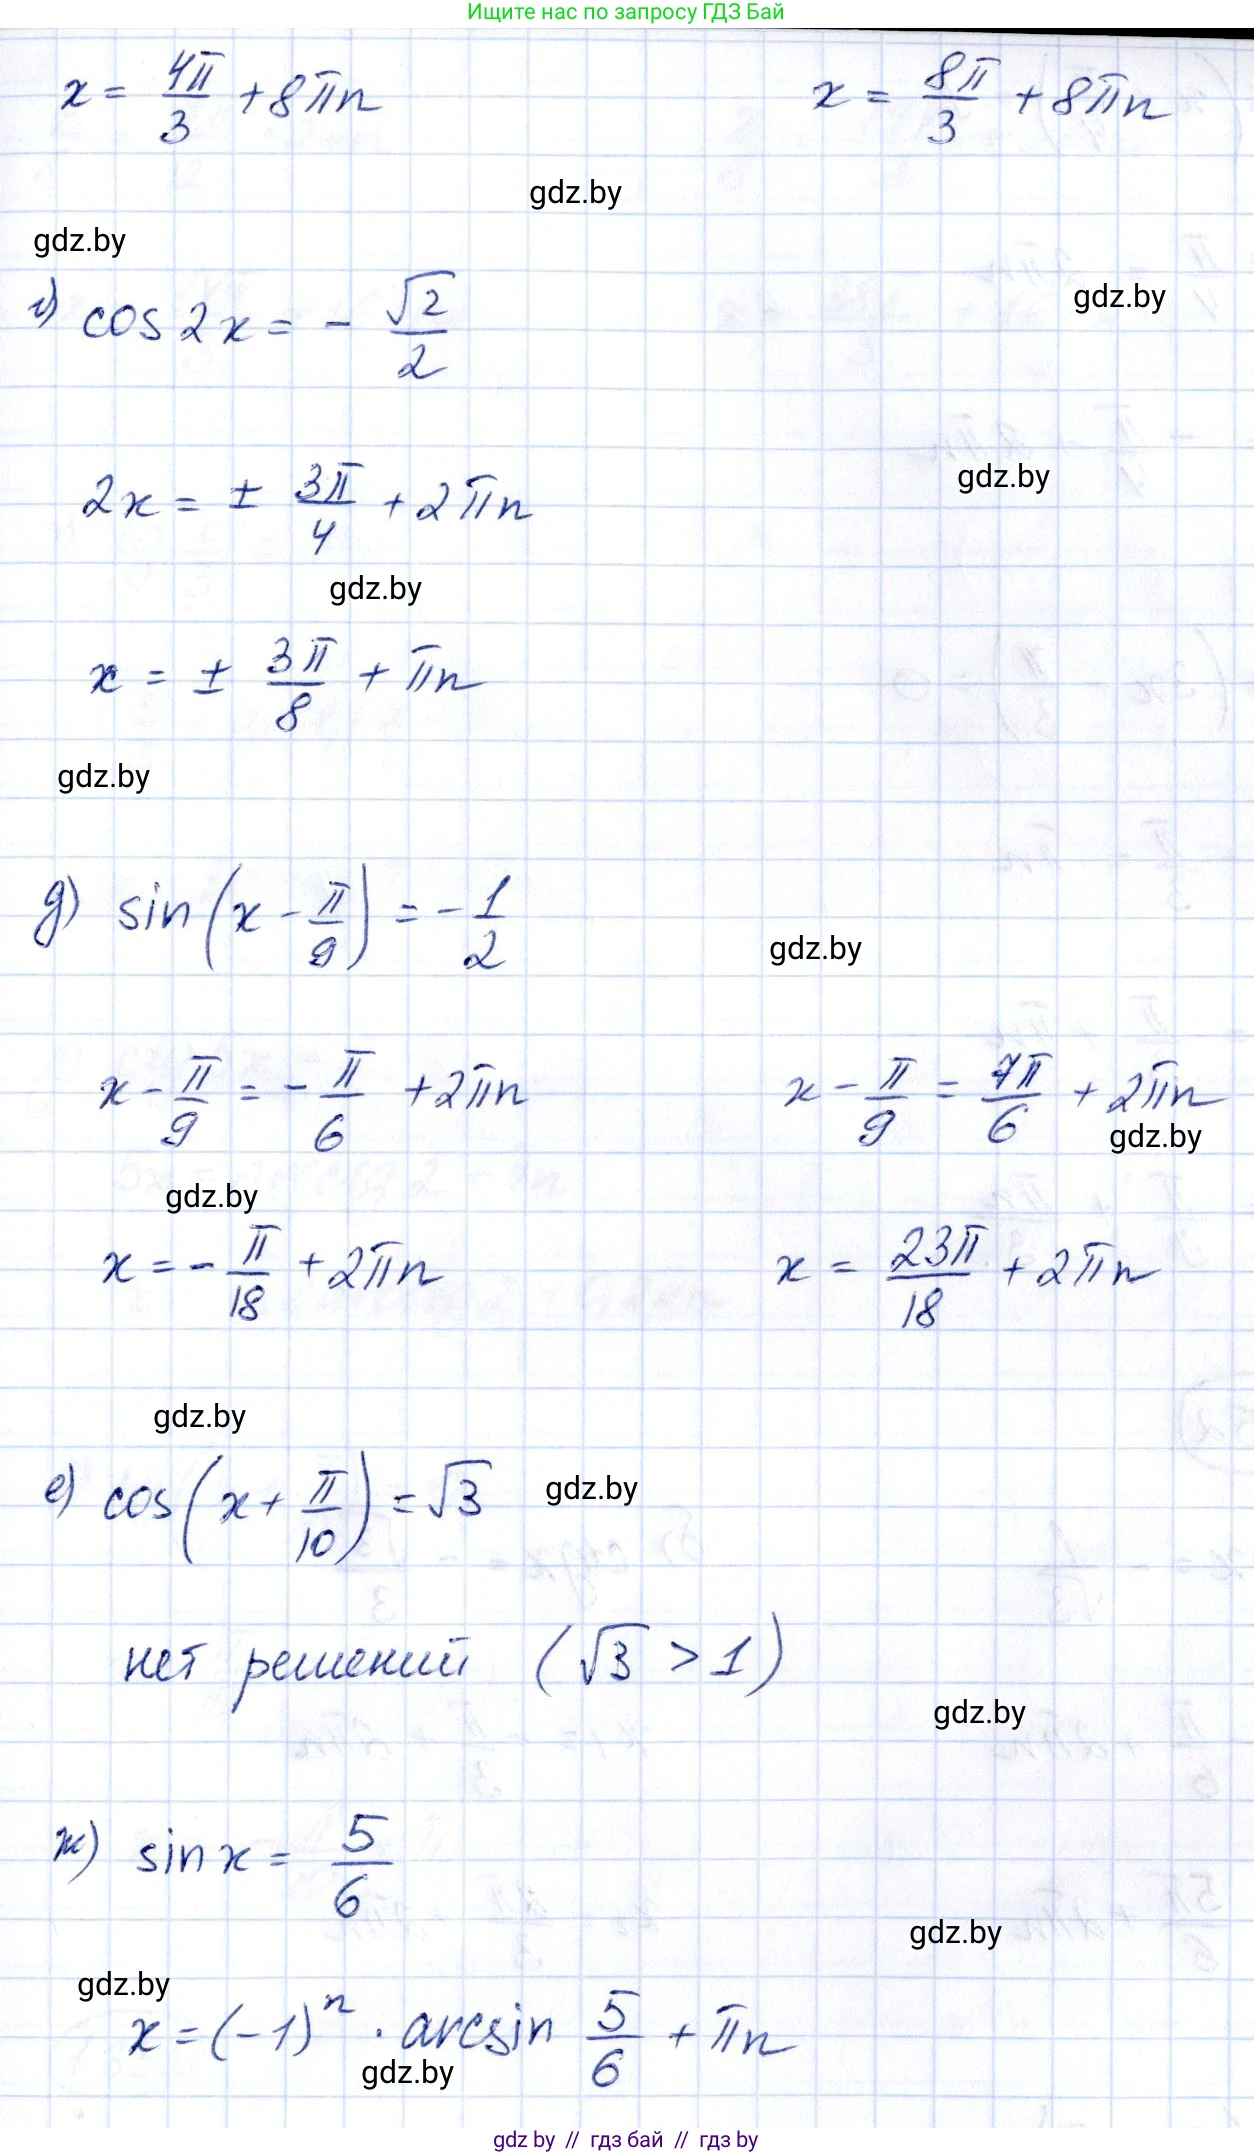 Ищите нас по запросу ГДЗ Бай
x = 4π/3 + 8πn     x = 8π/3 + 8πn
gdz.by
gdz.by
gdz.by
г) cos 2x = - √2/2
gdz.by
2x = ± 3π/4 + 2πn
gdz.by
x = ± 3π/8 + πn
gdz.by
д) sin(x - π/9) = - 1/2
gdz.by
x - π/9 = - π/6 + 2πn     x - π/9 = 7π/6 + 2πn
gdz.by
gdz.by
x = - π/18 + 2πn     x = 23π/18 + 2πn
gdz.by
е) cos(x + π/10) = √3
gdz.by
нет решений (√3 > 1)
gdz.by
ж) sin x = 5/6
gdz.by
gdz.by
x = (-1)ⁿ · arcsin 5/6 + πn
gdz.by
gdz by // гдз бай // гдз by